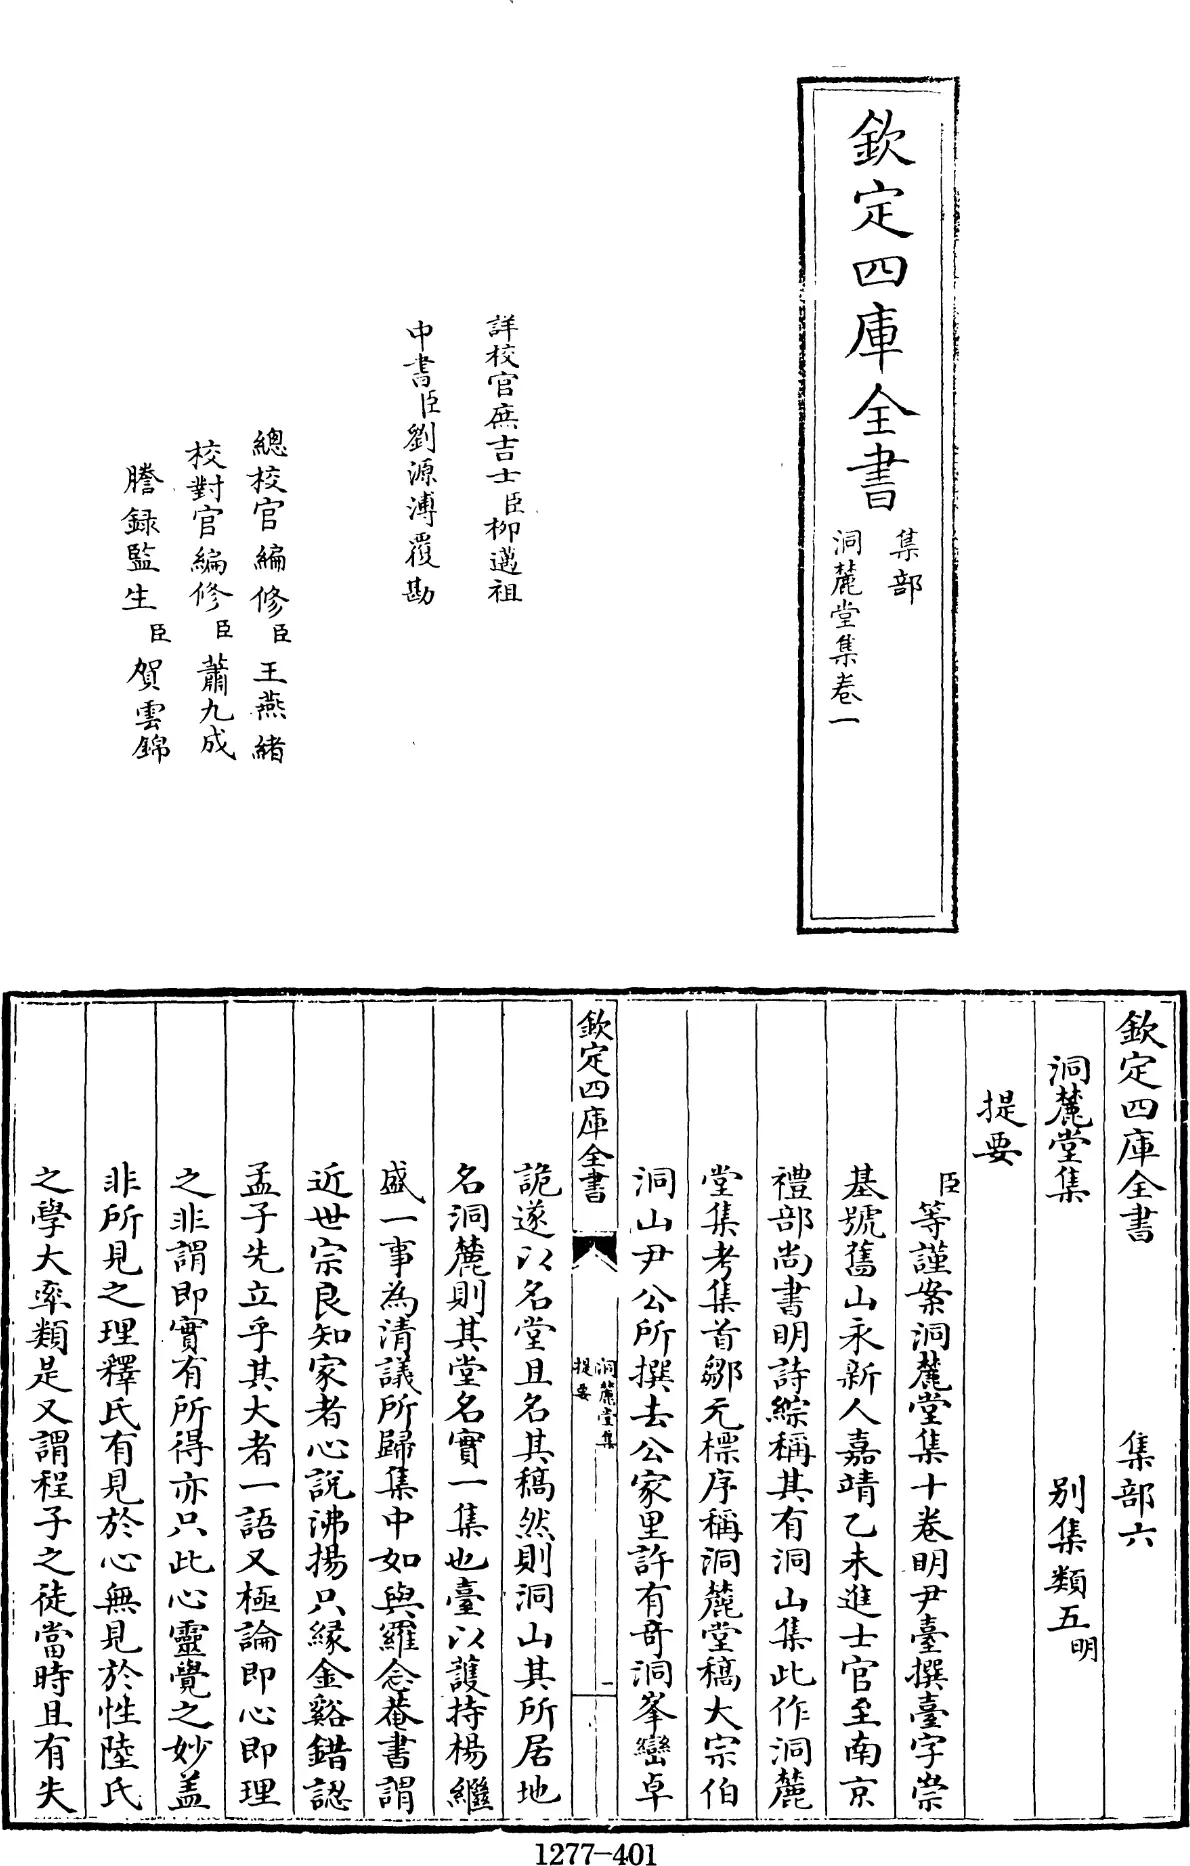 欽定四庫全書
集部
洞麓堂集卷一
詳校官庶吉士臣柳邁祖
中書臣劉源溥覆勘
總校官編修臣王燕緒
校對官編修臣蕭九成
謄錄監生臣賀雲錦
欽定四庫全書 集部六
洞麓堂集 别集類五明
提要
臣等謹案洞麓堂集十卷明尹臺撰臺字崇
基號舊山永新人嘉靖乙未進士官至南京
禮部尚書明詩綜稱其有洞山集此作洞麓
堂集考集首鄒元標序稱洞麓堂稿大宗伯
洞山尹公所撰去公家里許有奇洞峯巒卓
欽定四庫全書
洞麓堂集
提要
一
詭遂以名堂且名其稿然則洞山其所居地
名洞麓則其堂名實一集也臺以護持楊繼
盛一事為清議所歸集中如與羅念菴書謂
近世宗良知家者心說沸揚只緣金谿錯認
孟子先立乎其大者一語又極論即心即理
之非謂即實有所得亦只此心靈覺之妙盖
非所見之理釋氏有見於心無見於性陸氏
之學大率類是又謂程子之徒當時且有失
1277-401